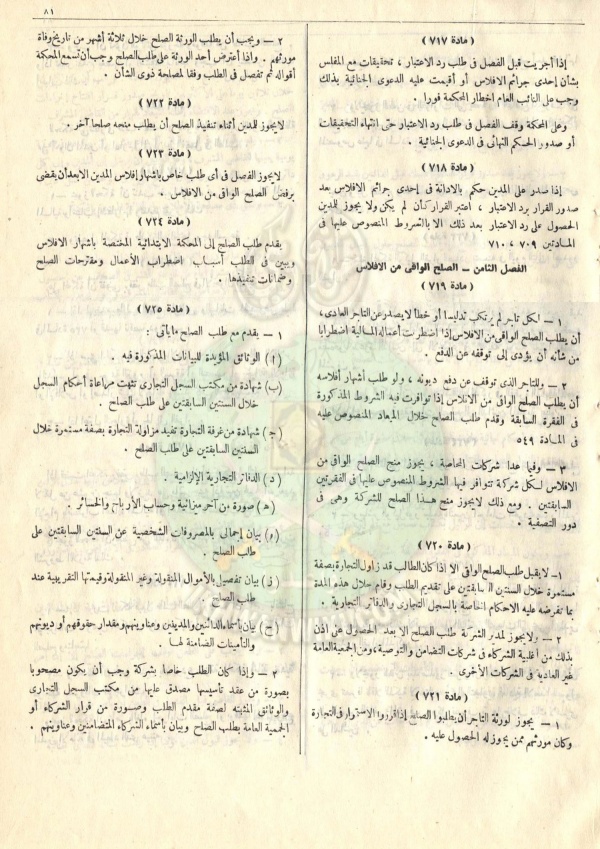 ٨١
( مادة ٧١٧ )
إذا أجريت قبل الفصل فى طلب رد الاعتبار ، تحقيقات مع المفلس
بشأن إحدى جرائم الافلاس أو أقيمت عليه الدعوى الجنائية بذلك
وجب على النائب العام اخطار المحكمة فورا .
وعلى المحكمة وقف الفصل فى طلب رد الاعتبار حتى انتهاء التحقيقات
أو صدور الحكم النهائى فى الدعوى الجنائية .
( مادة ٧١٨ )
إذا صدر على المدين حكم بالادانة فى إحدى جرائم الافلاس بعد
صدور القرار برد الاعتبار ، أعتبر القرار كأن لم يكن ولا يجوز للمدين
الحصول على رد الاعتبار بعد ذلك الا بالشروط المنصوص عليها فى
المادتين ٧٠٩ ، ٧١٠
الفصل الثامن – الصلح الواقى من الافلاس
( مادة ٧١٩ )
١ – لكل تاجر لم يرتكب تدليسا أو خطأ لا يصدر عن التاجر العادى ،
أن يطلب الصلح الواقى من الافلاس إذا اضطربت أعماله المالية اضطرابا
من شأنه أن يؤدى إلى توقفه عن الدفع .
٢ – وللتاجر الذى توقف عن دفع ديونه ، ولو طلب أشهار أفلاسه
أن يطلب الصلح الواقى من الافلاس إذا توافرت فيه الشروط المذكورة
فى الفقرة السابقة وقدم طلب الصلح خلال الميعاد المنصوص عليه
فى المادة ٥٤٩
٣ – وفيما عدا شركات المحاصة ، يجوز منح الصلح الواقى من
الافلاس لكل شركة تتوافر فيها الشروط المنصوص عليها فى الفقرتين
السابقتين . ومع ذلك لا يجوز منح هذا الصلح للشركة وهى فى
دور التصفية .
( مادة ٧٢٠ )
١ – لا يقبل طلب الصلح الواقى الا اذا كان الطالب قد زاول التجارة بصفة
مستمرة خلال السنتين السابقتين على تقديم الطلب وقام خلال هذه المدة
بما تفرضه عليه الاحكام الخاصة بالسجل التجارى والدفاتر التجارية .
٢ – ولا يجوز لمدير الشركة طلب الصلح الا بعد الحصول على اذن
بذلك من أغلبية الشركاء فى شركات التضامن والتوصية ، ومن الجمعية العامة
غير العادية فى الشركات الأخرى .
( مادة ٧٢١ )
١ – يجوز لورثة التاجر أن يطلبوا الصلح إذا قرروا الاستمرار فى التجارة
وكان مورثهم ممن يجوز له الحصول عليه .
٢ – ويجب أن يطلب الورثة الصلح خلال ثلاثة أشهر من تاريخ وفاة
مورثهم . واذا أعترض أحد الورثة على طلب الصلح وجب أن تسمع المحكمة
أقواله ثم تفصل فى الطلب وفقا لمصلحة ذوى الشأن .
( مادة ٧٢٢ )
لايجوز للمدين أثناء تنفيذ الصلح أن يطلب منحه صلحا آخر .
( مادة ٧٢٣ )
لايجوز الفصل فى أى طلب خاص باشهار إفلاس المدين الا بعد أن يقضى
برفض الصلح الواقى من الافلاس .
( مادة ٧٢٤ )
يقدم طلب الصلح إلى المحكمة الابتدائية المختصة باشهار الافلاس
ويبين فى الطلب أسباب اضطراب الأعمال ومقترحات الصلح
وضمانات تنفيذها .
( مادة ٧٢٥ )
١ – يقدم مع طلب الصلح ما يأتى :
( ا ) الوثائق المؤيدة للبيانات المذكورة فيه .
(ب) شهادة من مكتب السجل التجارى تثبت مراعاة أحكام السجل
خلال السنتين السابقتين على طلب الصلح .
(ج) شهادة من غرفة التجارة تفيد مزاولة التجارة بصفة مستمرة خلال
السنتين السابقتين على طلب الصلح .
( د ) الدفاتر التجارية الإلزامية .
( ه ) صورة من آخر ميزانية وحساب الأرباح والخسائر .
( و ) بيان إجمالى بالمصروفات الشخصية عن السنتين السابقتين على
طلب الصلح .
( ز ) بيان تفصيلى بالأموال المنقولة وغير المنقولة وقيمتها التقريبية عند
طلب الصلح .
(ح) بيان بأسماء الدائنين والمدينين وعناوينهم ومقدار حقوقهم أو ديونهم
والتأمينات الضامنة لها .
٢ – وإذا كان الطلب خاصا بشركة وجب أن يكون مصحوبا
بصورة من عقد تأسيسها مصدق عليها من مكتب السجل التجارى
والوثائق المثبته لصفة مقدم الطلب وصورة من قرار الشركاء أو
الجمعية العامة بطلب الصلح وبيان بأسماء الشركاء المتضامنين وعناوينهم .